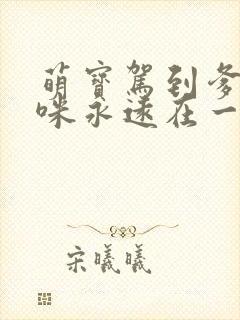 萌寶駕到爹
咪永遠在一
宋曦曦